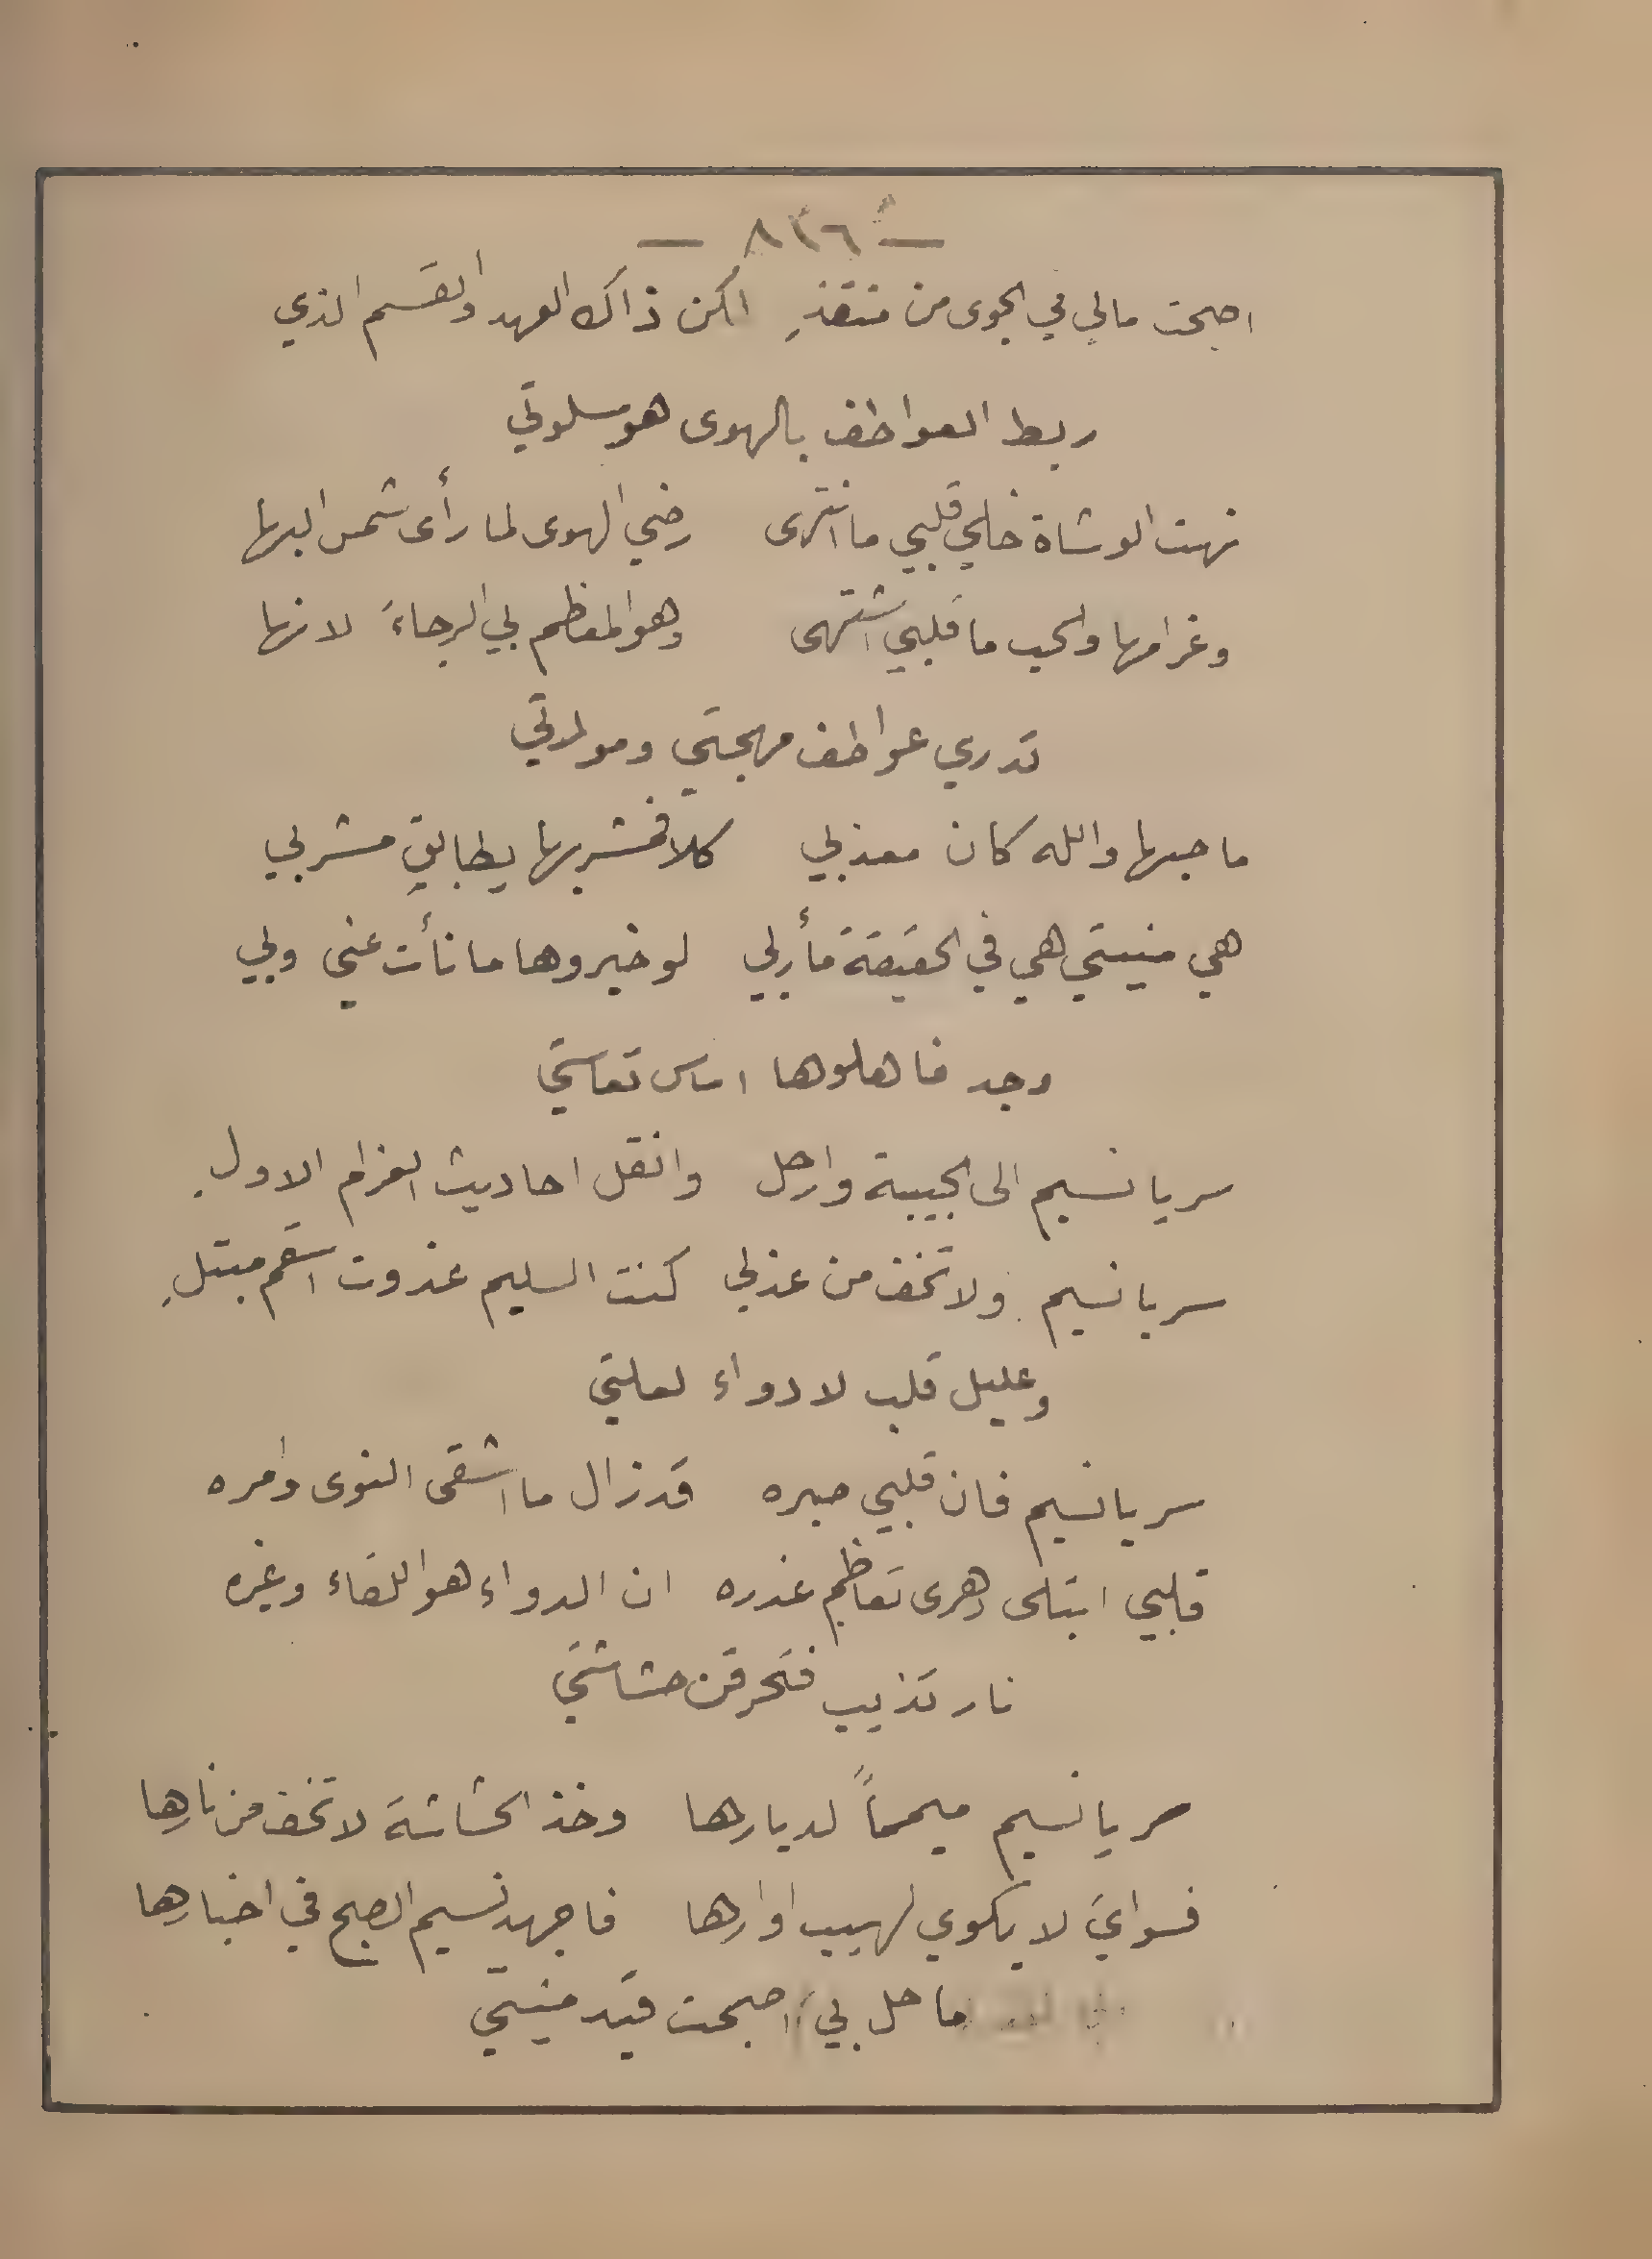 — ٨٢٦ —
اصبحت مالي في الجوى من منقذِ لكن ذاك العهد والقسم الذي
ربط العواطف بالهوى هو سلوتي
نهت الوشاة خلي قلبي ما انتهى رضي الهوى لما رأى شمس البها
وغرامها والحب ما قلبي اشتهى وهو المعظم لي الرجاءَ لانها
تدري عواطف مهجتي ومودتي
ما حبها والله كان معذبي كلا فمشربها يطابق مشربي
هي منيتي هي في الحقيقة مأربي لو خيروها ما نأت عني وبي
وجد فاهلوها اساس تعاستي
سر يا نسيم الى الحبيبة وارحل وانقل احاديث الغرام الاول
سر يا نسيم ولا تخف من عذلي كنت السليم غدوت اسقم مبتلِ
وعليل قلب لا دواء لعلتي
سر يا نسيم فان قلبي صبره قد زال ما اشقى النوى وامره
قلبي ابتلى دهرى تعاظم غدره ان الدواء هو اللقاء وغيره
نار تذيب فتحرقن حشاشتي
سر يا نسيم ميمماً لديارها وخذ الحشاشة لا تخف من نارها
فسوايَ لا يكوي لهيب اوارها فاجهد نسيم الصبح في اخبارها
ما حل بي اصبحت قيد منيتي